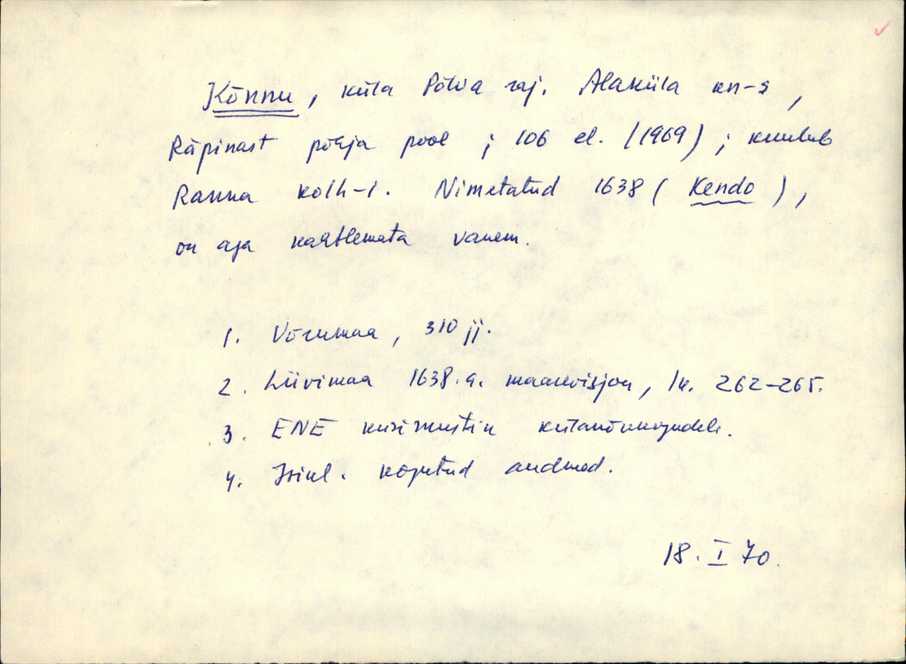 Kõnnu, küla Põlva raj. Alaküla kn-s,
Räpinast põhja pool; 106 el. (1969); kuulub
Ranna kolh-i. Nimetatud 1638 (Kendo),
on aga kahtlemata vanem.
1. Võrumaa, 310 jj.
2. Liivimaa 1638.a. maarevisjon, lk. 262-265.
3. ENE küsimustik külanõukogudele.
4. Isikl. kogutud andmed.
18. I 70.